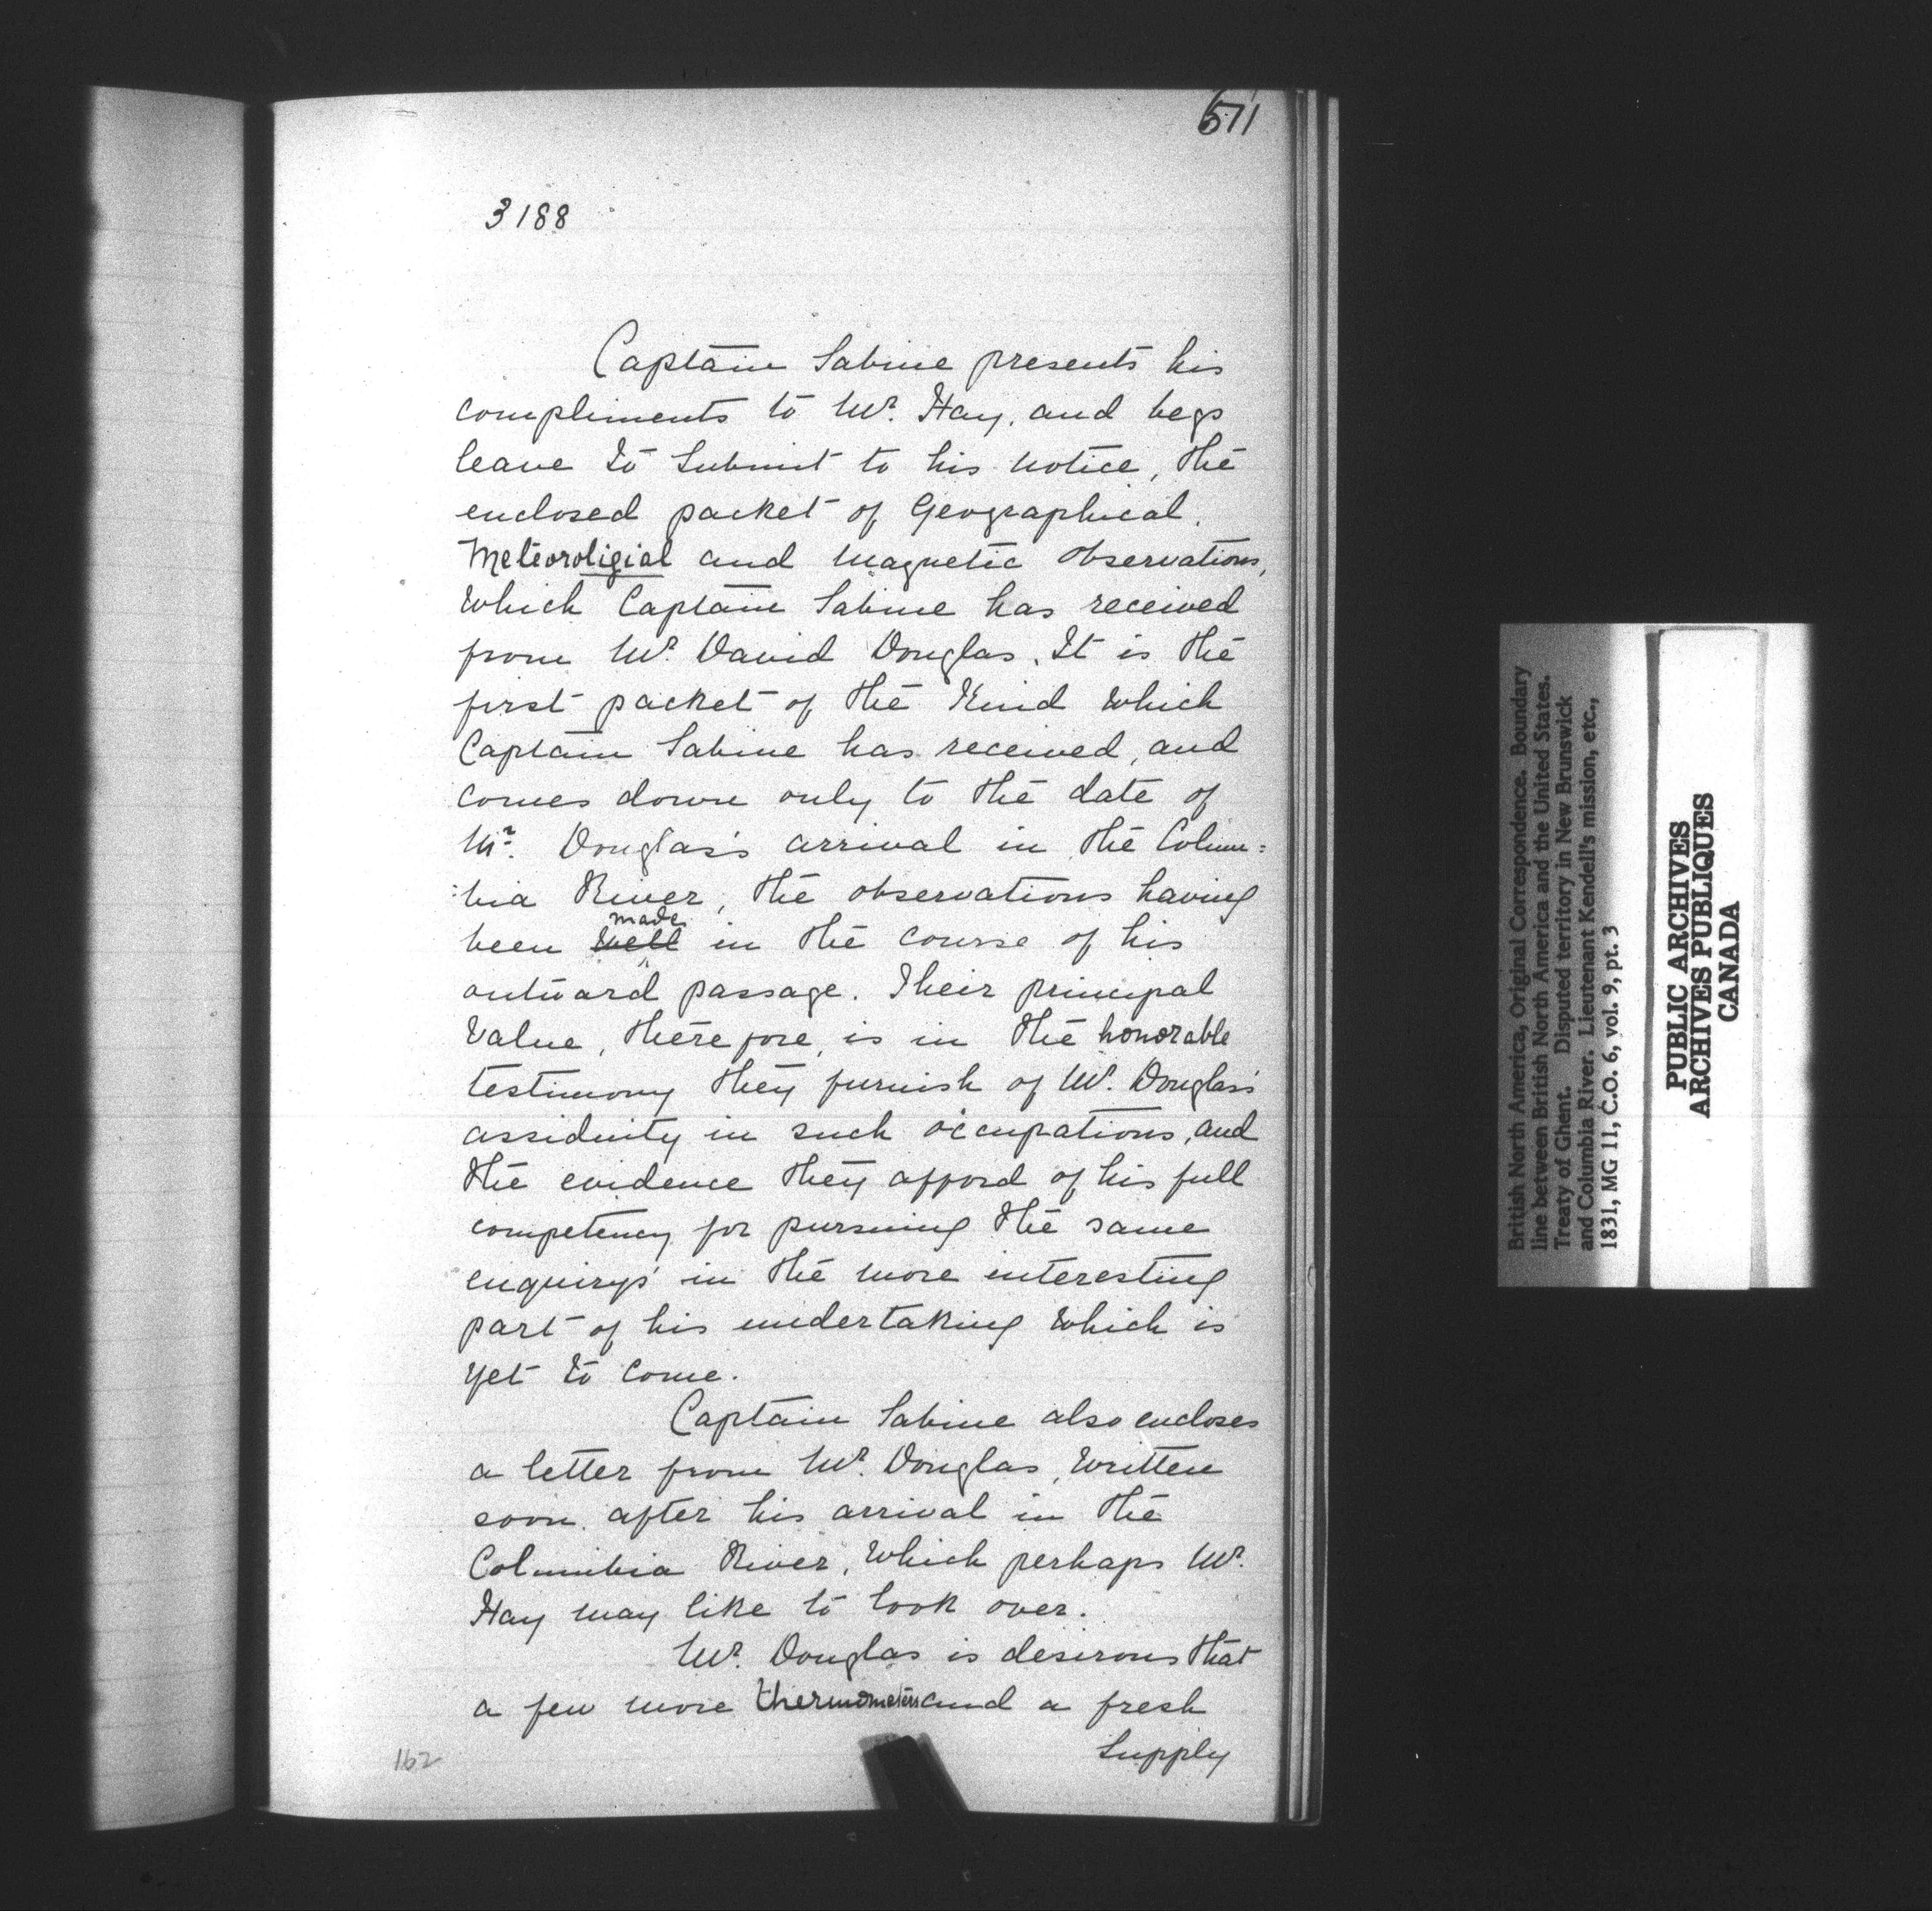 571
3188
Captain Sabine presents his
compliments to Mr. Hay, and begs
leave to submit to his notice, the
enclosed packet of Geographical,
Meteoroligial and Magnetic Observations,
which Captain Sabine has received
from Mr. David Douglas. It is the
first packet of the Kind which
Captain Sabine has received, and
comes down only to the date of
Mr. Douglas's arrival in the Colum=
:bia River, the observations having
made
been well in the course of his
outward passage. Their principal
value, therefore, is in the honorable
testimony they furnish of Mr. Douglas's
assiduity in such occupations, and
the evidence they afford of his full
competency for pursuing the same
enquirys in the more interesting
part of his undertaking which is
yet to come.
Captain Sabine also encloses
a letter from Mr. Douglas, written
soon after his arrival in the
Columbia River, which perhaps Mr.
Hay may like to look over.
Mr. Douglas is desirous that
a few more thermometers and a fresh
supply
162
British North America, Original Correspondence. Boundary
line between British North America and the United States.
Treaty of Ghent. Disputed territory in New Brunswick
and Columbia River. Lieutenant Kendell's mission, etc.,
1831, MG 11, C.O. 6, vol. 9, pt. 3
PUBLIC ARCHIVES
ARCHIVES PUBLIQUES
CANADA